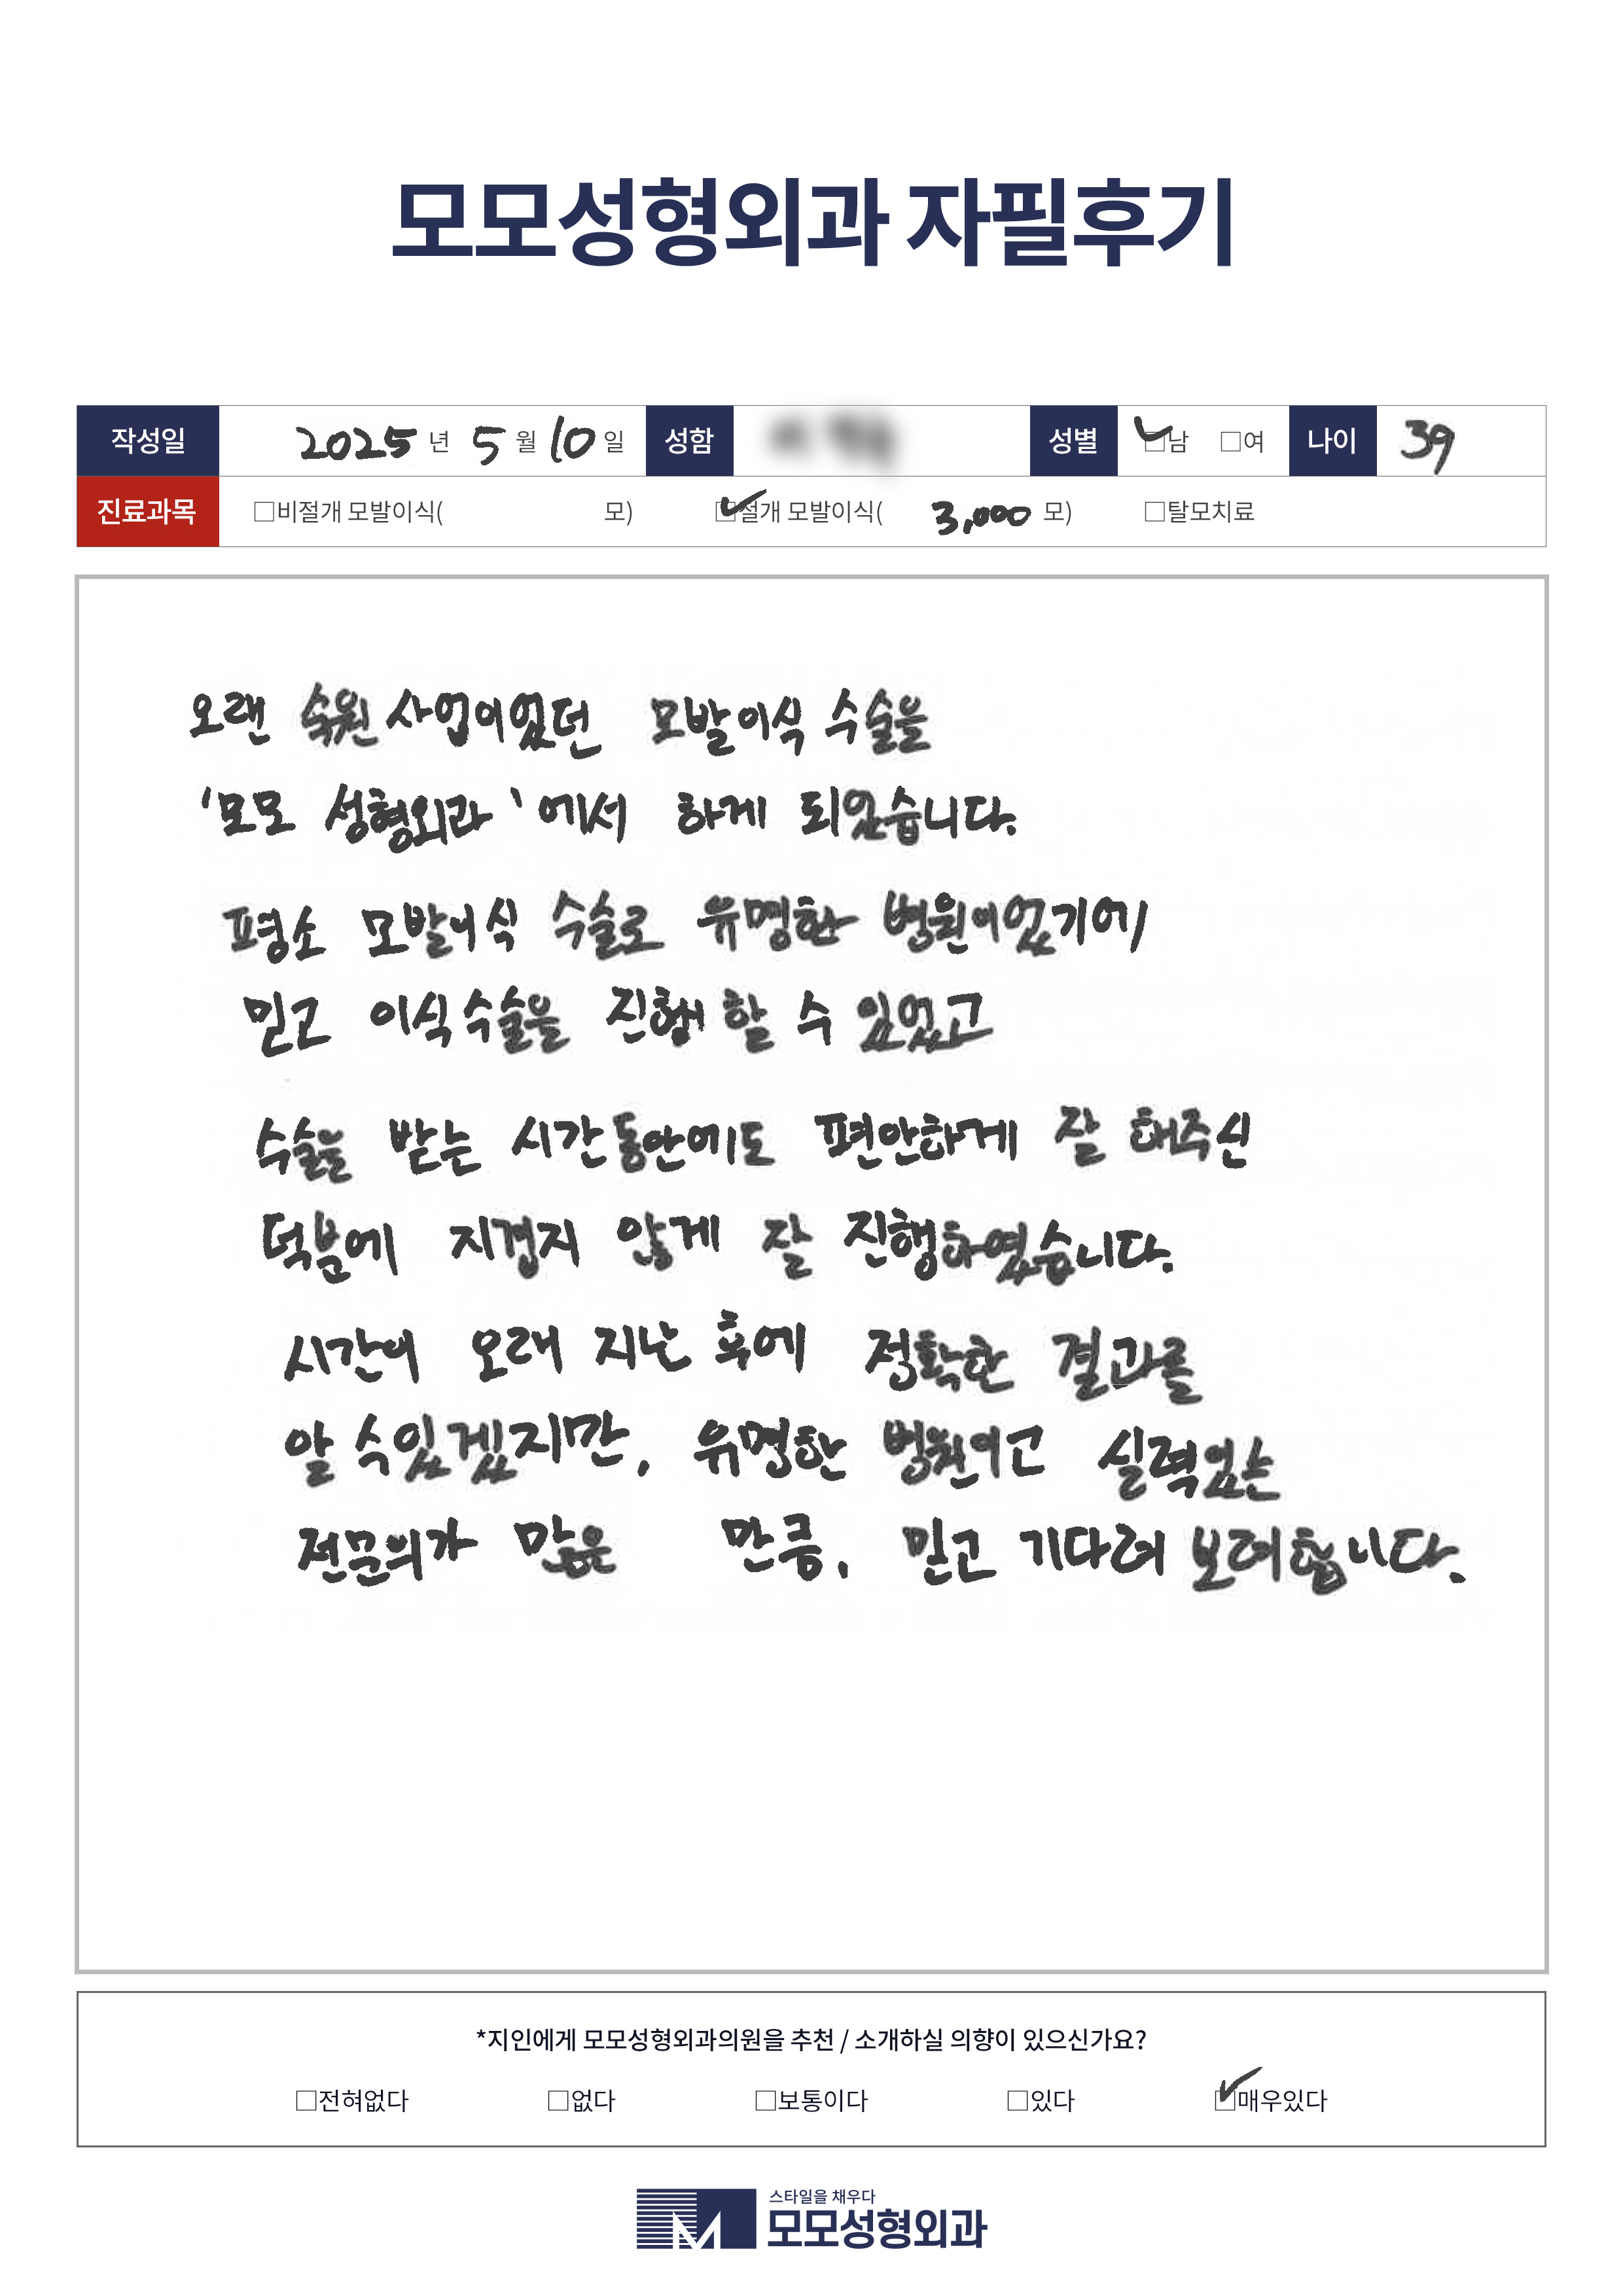 모모성형외과 자필후기
작성일 2025 년 5 월 10 일 성함 성별 ☑남 □여 나이 39
진료과목 □비절개 모발이식( 모) ☑절개 모발이식( 3,000 모) □탈모치료
오랜 숙원 사업이었던 모발이식 수술을
'모모 성형외과'에서 하게 되었습니다.
평소 모발이식 수술로 유명한 병원이었기에
믿고 이식수술을 진행 할 수 있었고
수술을 받는 시간동안에도 편안하게 잘 해주신
덕분에 지겹지 않게 잘 진행하였습니다.
시간이 오래 지난 후에 정확한 결과를
알 수있겠지만, 유명한 병원이고 실력있는
전문의가 많은 만큼, 믿고 기다려 보려 합니다.
*지인에게 모모성형외과의원을 추천 / 소개하실 의향이 있으신가요?
□전혀없다 □없다 □보통이다 □있다 ☑매우있다
스타일을 채우다
모모성형외과